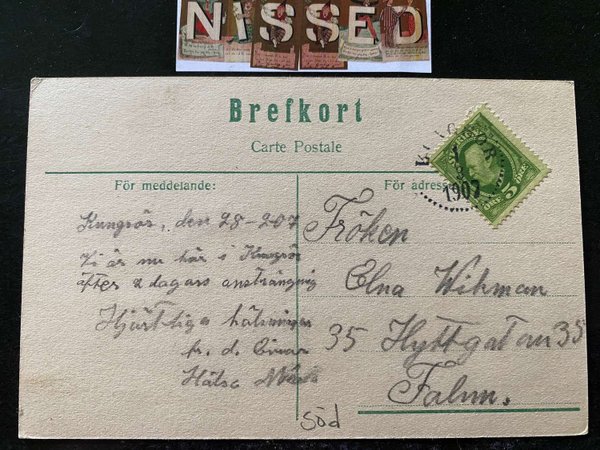 NISSED
Brefkort
Carte Postale
För meddelande:
För adress
Kungsör, den 28-2-07
Vi är nu här i Kungsör
efter 2 dagars ansträngnig
Hjärtliga hälsningar
fr. d.
Hälsa
Fröken
Elna Wikman
35 Hyttgatan 35
Falun.
1907
5
ÖRE
söd